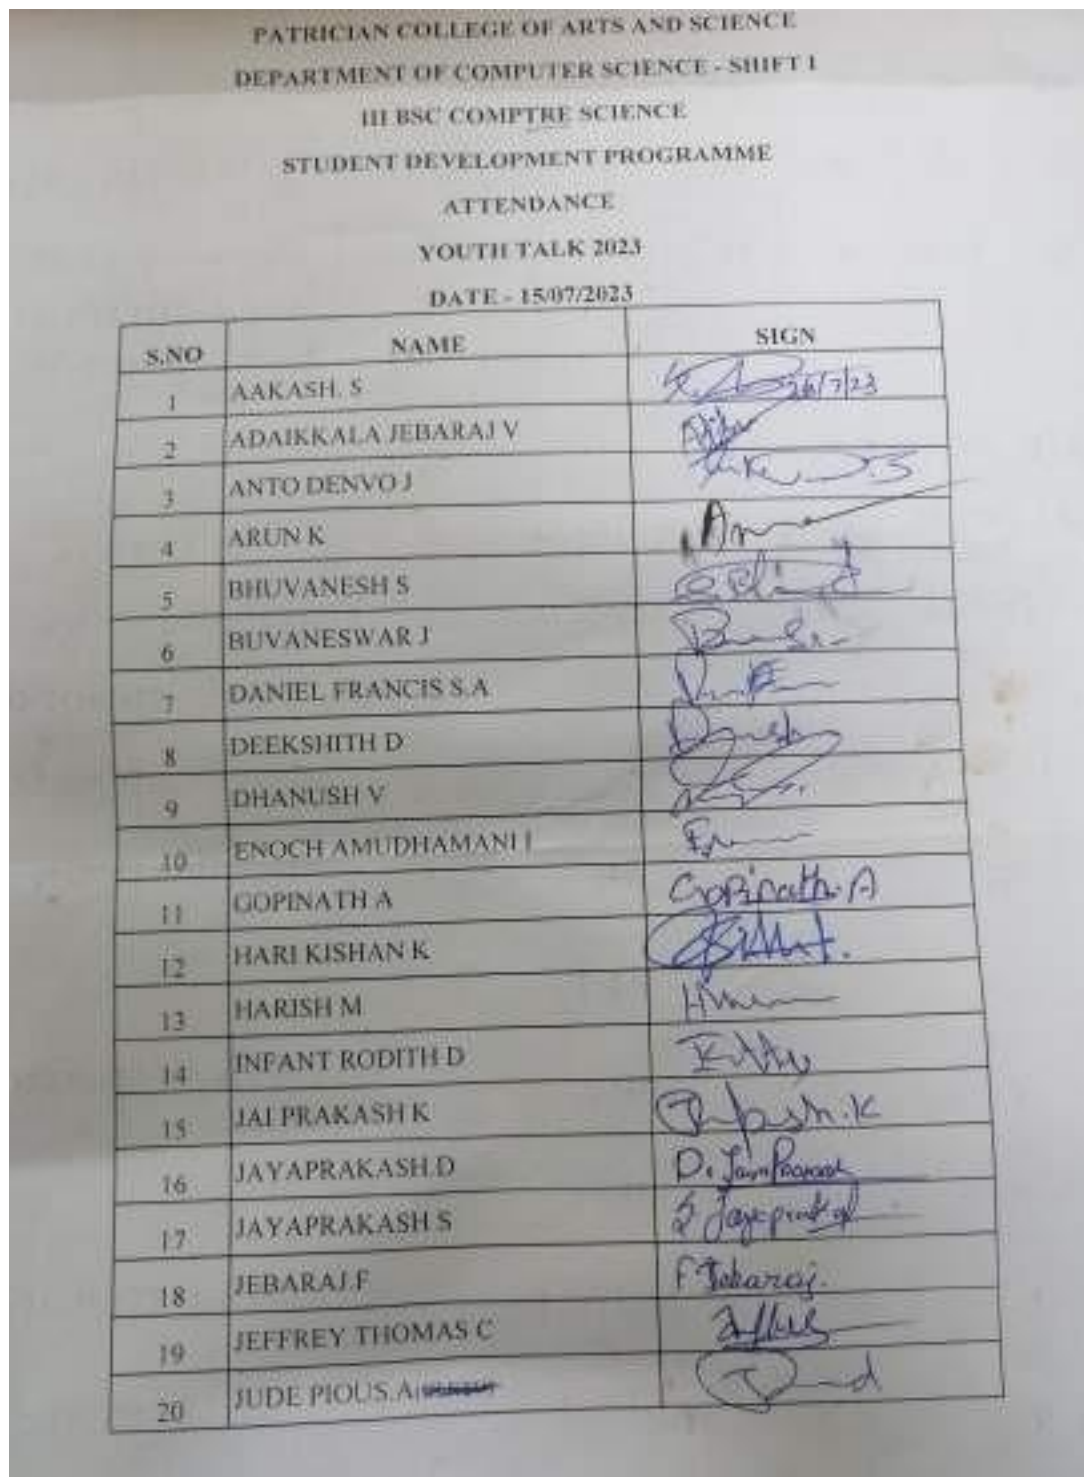 PATRICIAN COLLEGE OF ARTS AND SCIENCE
DEPARTMENT OF COMPUTER SCIENCE - SHIFT I
III BSC COMPTRE SCIENCE
STUDENT DEVELOPMENT PROGRAMME
ATTENDANCE
YOUTH TALK 2023
DATE - 15/07/2023
S.NO NAME SIGN
1 AAKASH. S 26/7/23
2 ADAIKKALA JEBARAJ V
3 ANTO DENVO J
4 ARUN K
5 BHUVANESH S
6 BUVANESWAR J
7 DANIEL FRANCIS S.A
8 DEEKSHITH D
9 DHANUSH V
10 ENOCH AMUDHAMANI I
11 GOPINATH A Gopinath. A
12 HARI KISHAN K
13 HARISH M
14 INFANT RODITH D
15 JAI PRAKASH K
16 JAYAPRAKASH.D
17 JAYAPRAKASH S S Jayaprakash
18 JEBARAJ.F F Jebaraj.
19 JEFFREY THOMAS C
20 JUDE PIOUS.A